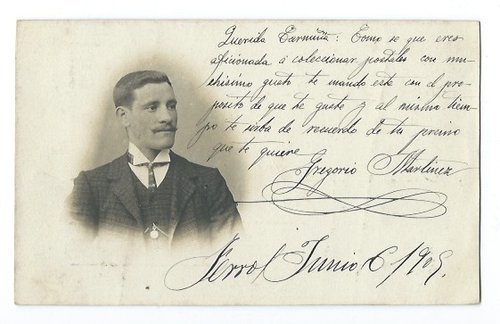 Querida Carmiña: Como se que eres
aficionada á coleccionar postales con mu
chisimo gusto te mando esta con el pro
posito de que te guste y al mismo tiem
po te sirba de recuerdo de tu primo
que te quiere
Gregorio Martinez.
Ferrol Junio 6/1905.